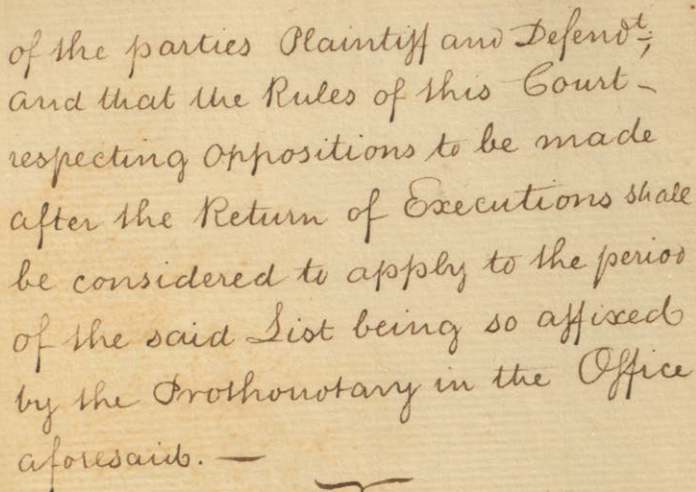 of the parties Plaintiff and Defend^t;
and that the Rules of this Court -
respecting Oppositions to be made
after the Return of Executions shall
be considered to apply to the period
of the said List being so affixed
by the Prothonotary in the Office
aforesaid. —